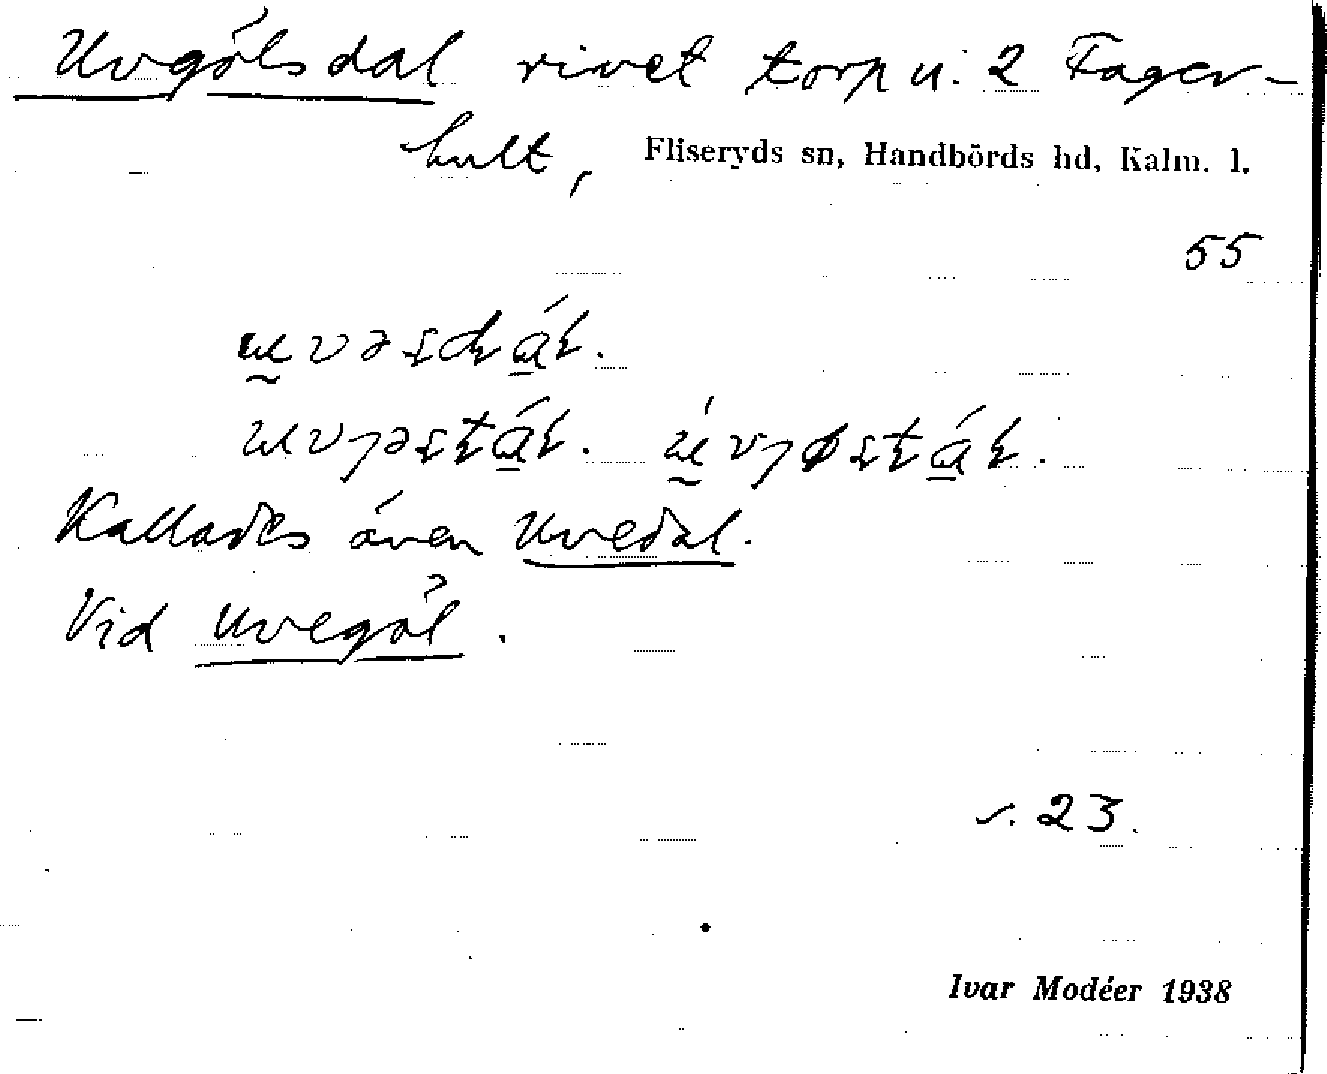 Uvgölsdal rivet torp u. 2 Fager-
hult, Fliseryds sn, Handbörds hd, Kalm. l.
55
Kallades även Uvedal.
Vid Uvegöl.
s. 23.
Ivar Modéer 1938